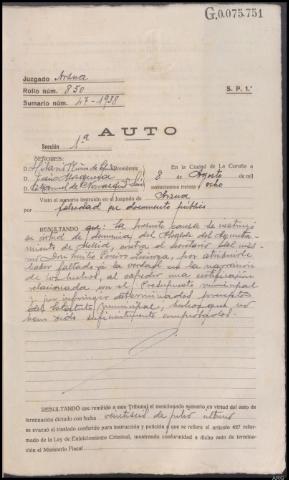 G.0.075.751
Juzgado Arzua
Rollo núm. 850
Sumario núm. 47-1938
S. P. 1.ª
AUTO
Sección 1ª
SEÑORES:
D. presidente
D.
D.
En la Ciudad de La Coruña a
2 Agosto de mil
novecientos treinta y ocho
Visto el sumario instruido en el Juzgado de Arzua
por falsedad en documento público
RESULTANDO que: la presente causa se instruyó
en virtud de denuncia del Alcalde del Ayunta-
miento de Mellid, contra el secretario del mis-
mo Don Emilio, por atribuirle
haber faltado a la verdad en la narración
de los hechos, al expedir una certificación
relacionada con el Presupuesto municipal
y por infringir determinados preceptos
del Estatuto municipal, hechos que no
han sido suficientemente comprobados.
RESULTANDO que remitido a este Tribunal el mencionado sumario en virtud del auto de
terminación dictado con fecha veintiseis de julio último
se evacuó el traslado conferido para instrucción y petición a que se refiere el artículo 627 refor-
mado de la Ley de Enjuiciamiento Criminal, mostrando conformidad a dicho auto de termina-
ción el Ministerio Fiscal